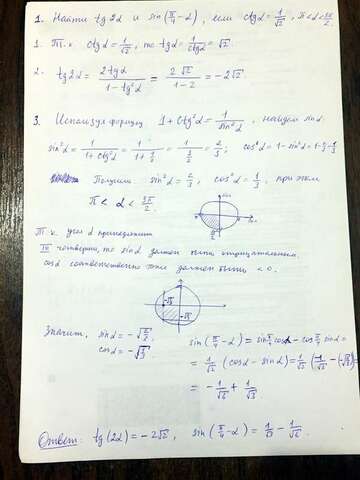 1. Найти tg2α и sin(π/4 - α), если ctgα = 1/√2, π<α<3π/2.
1. Т.к. ctgα = 1/√2, то tgα = 1/ctgα = √2
2. tg2α = 2tgα/(1 - tg²α) = 2√2/(1-2) = -2√2.
3. Используя формулу 1+ctg²α = 1/sin²α, найдем
sin²α = 1/(1+ctg²α) = 1/(1+1/2) = 1/(3/2) = 2/3; cos²α = 1-sin²α = 1-2/3=1/3
Получим sin²α = 2/3, cos²α = 1/3, при этом
π < α < 3π/2.
Т.к. угол α принадлежит
III четверти, то sinα должен быть отрицательным.
cosα соответственно тоже должен быть < 0.
Значит, sinα = -√2/3,
cosα = -√1/3
sin(π/4 - α) = sinπ/4 cosα - cosπ/4 sinα =
= 1/√2 (cosα - sinα) = 1/√2
= -1/√6 + 1/√3
Ответ: tg(2α) = -2√2, sin(π/4 - α) = 1/√3 - 1/√6.